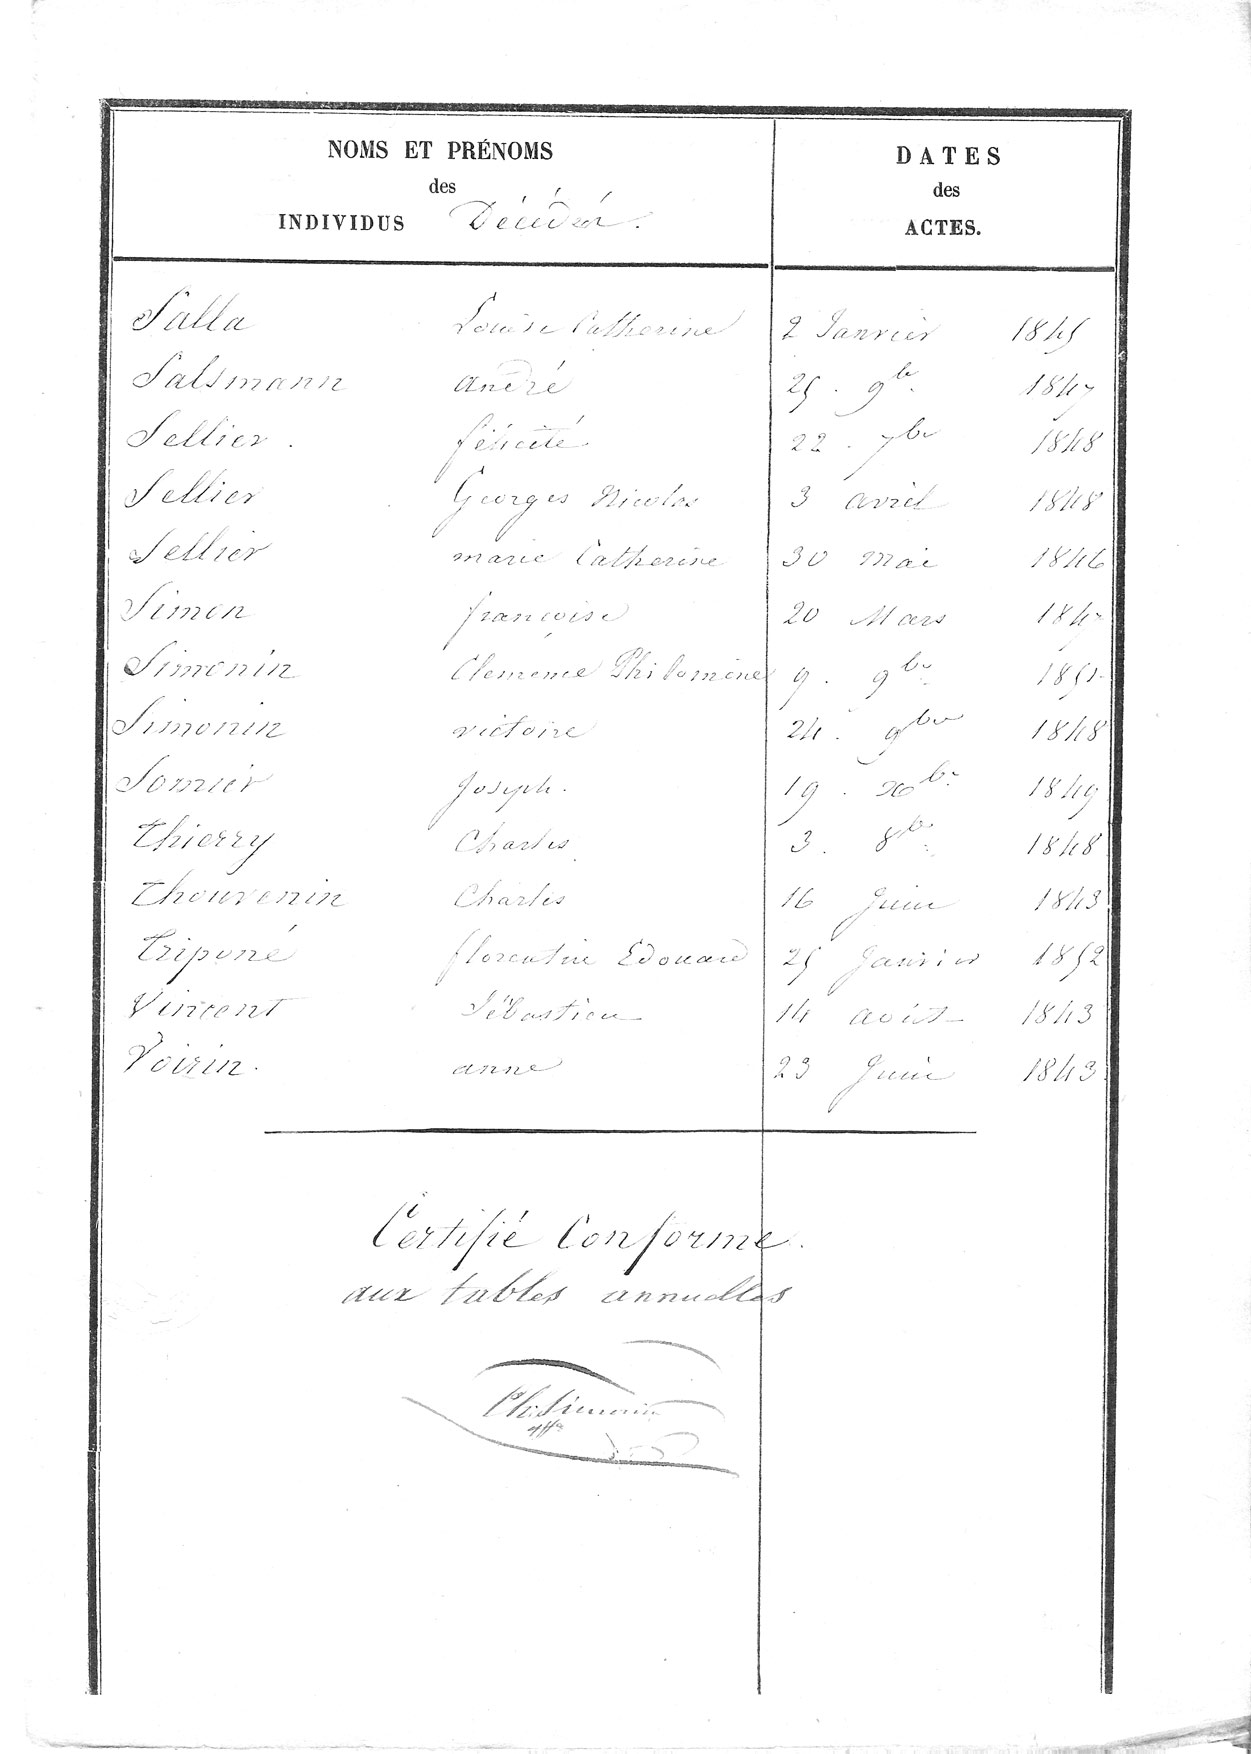 NOMS ET PRÉNOMS
des
INDIVIDUS Décédés.
DATES
des
ACTES.
Salla Louise Catherine 2 Janvier 1845
Salsmann andré 25. 9bre 1847
Sellier. félicité 22. 7bre 1848
Sellier Georges Nicolas 3 avril 1848
Sellier marie Catherine 30 mai 1846
Simon françoise 20 Mars 1847
Simonin Clemence Philomène 9. 9bre
Simonin victoire 24. 9bre 1848
Somier Joseph. 19. xbre 1849
Thierry Charles 3. 8bre 1848
Thouvenin Charles 16 Juin 1843
Triponé florentin Edouard 25 Janvier 1852
Vincent Sébastien 14 août 1843
Voirin. anne 23 Juin 1843
Certifié Conforme.
aux tables annuelles
Simonin